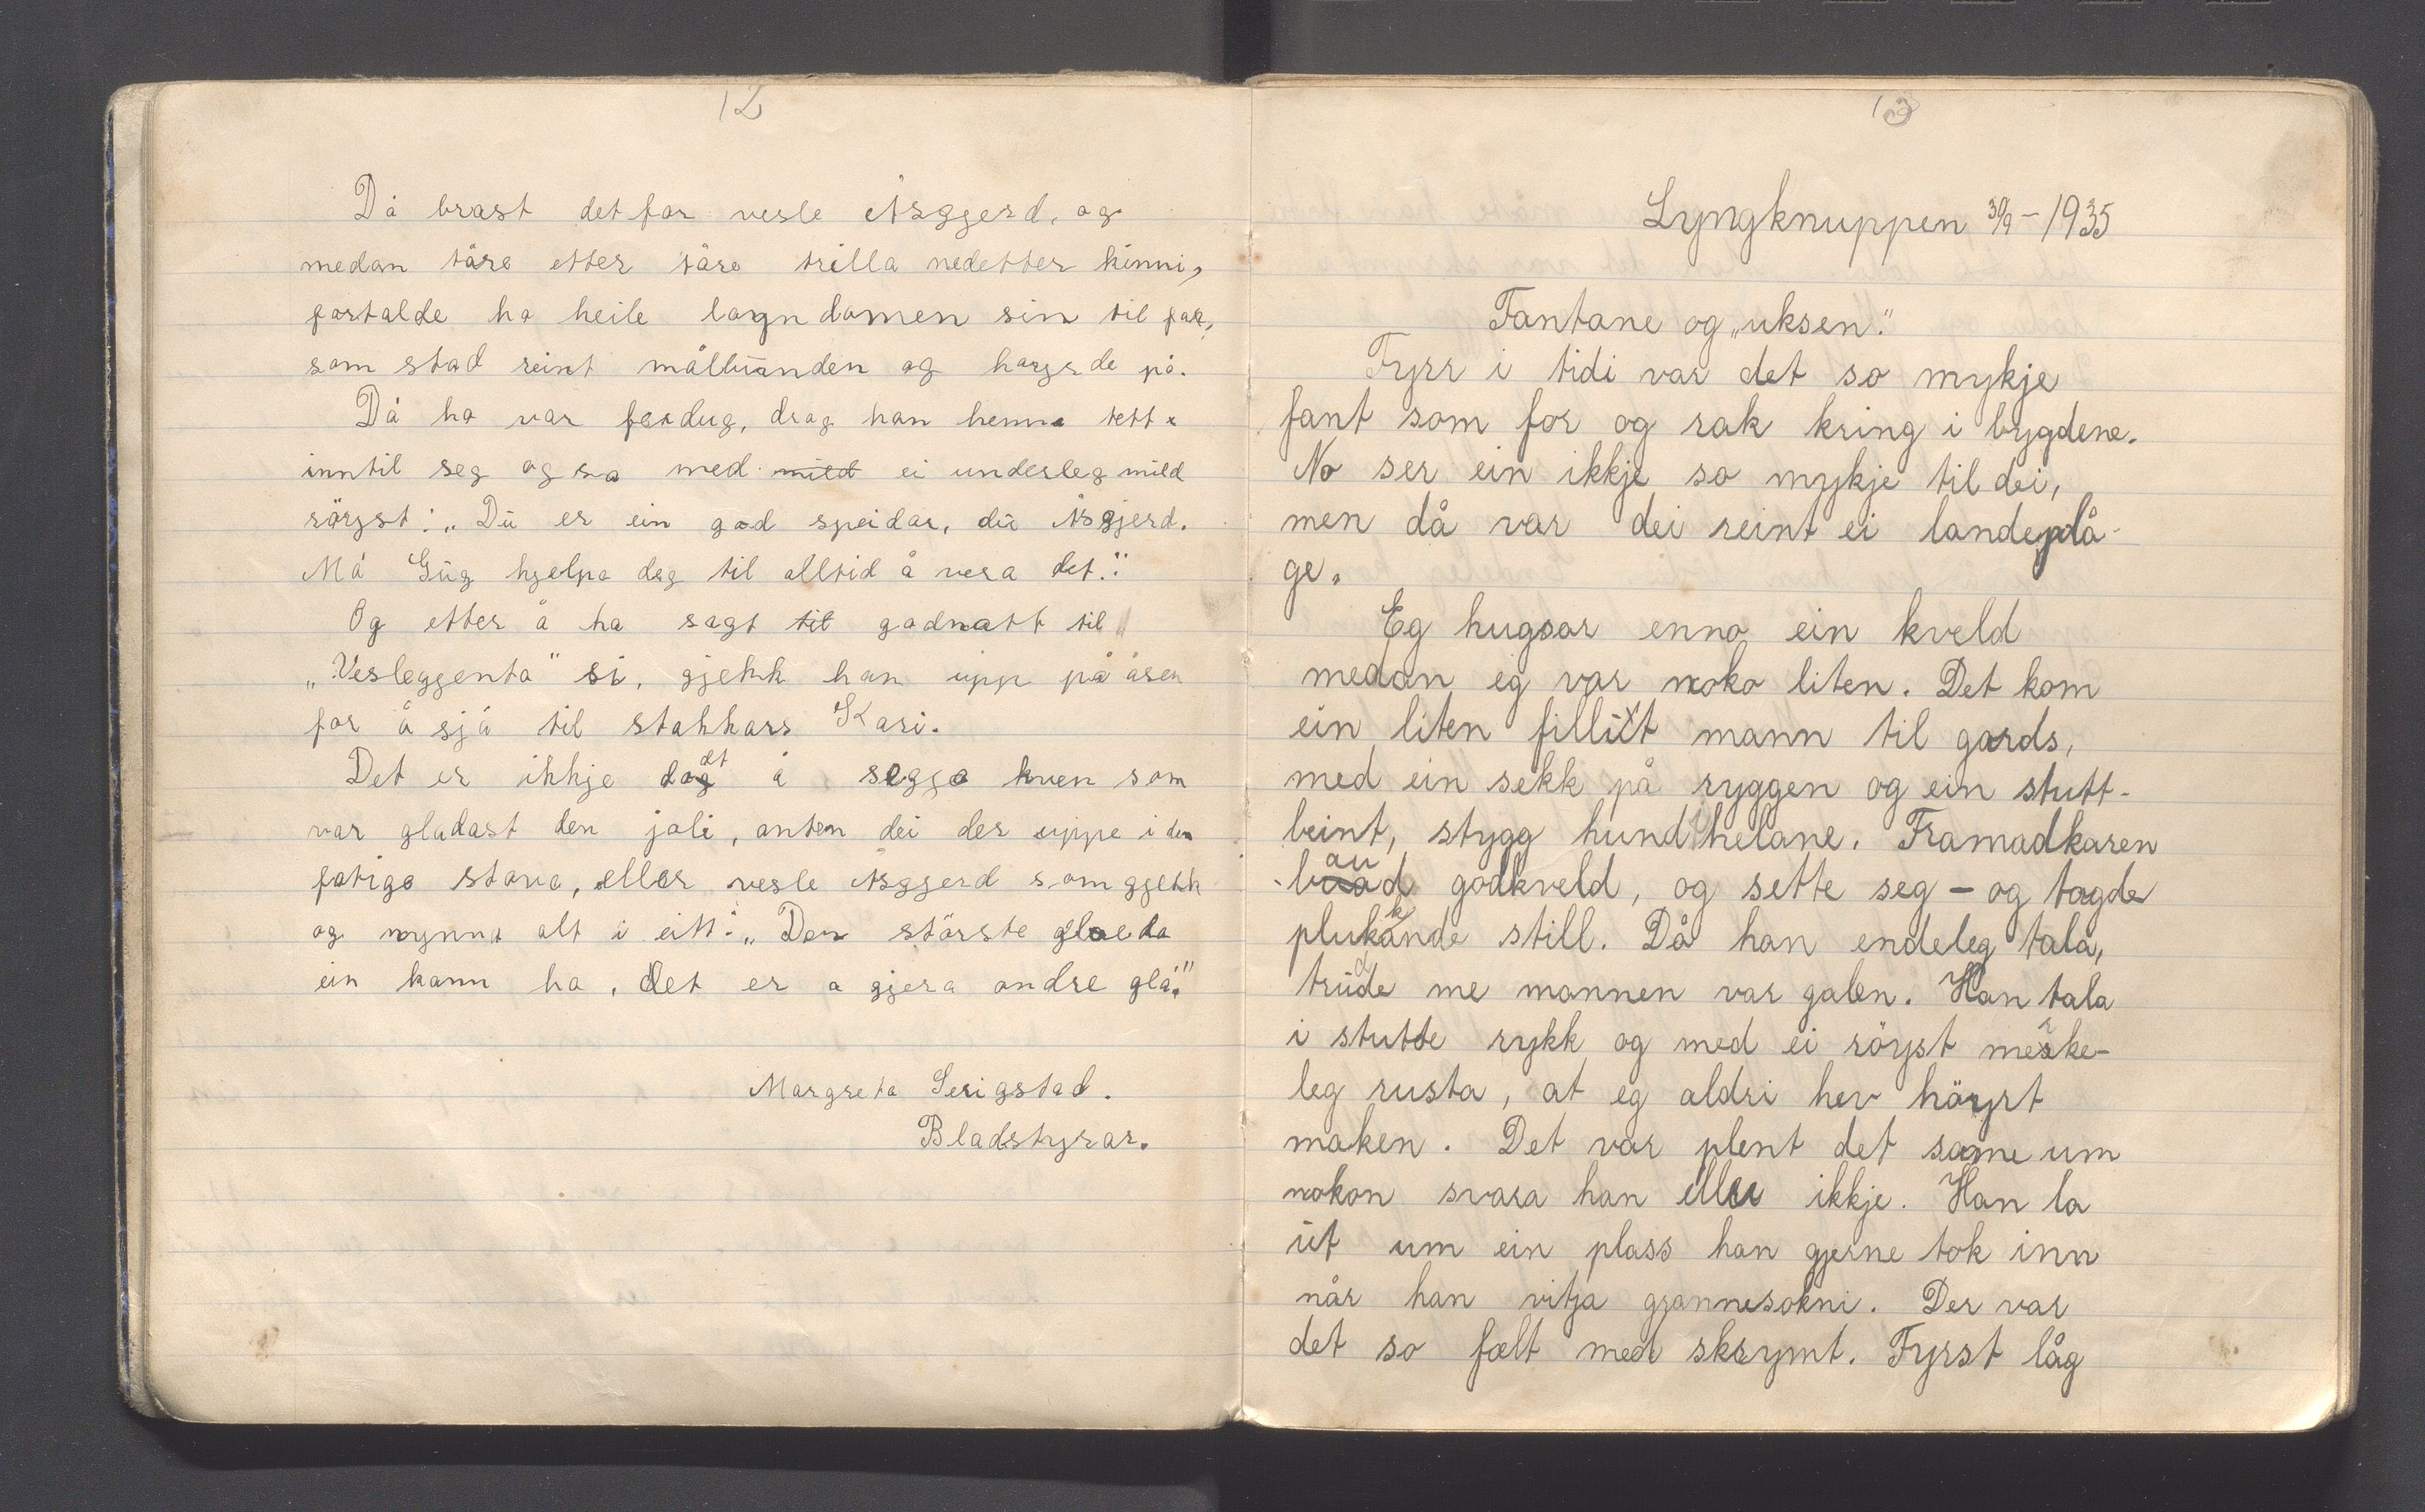 12
Då brast det for vesle Åsgjerd, og
medan tåre etter tåre trilla nedetter kinni,
fortalde ho heile lagndomen sin til far,
som stod reint målbunden og høyrde på.
Då ho var ferdug, drog han henne tett
inntil seg og sa med mild ei underleg mild
röyst: „Du er ein god speidar, du Åsgjerd.
Må Gug hjelpa deg til alltid å vera det."
Og etter å ha sagt til godnatt til
„Vesleggenta" si, gjekk han upp på åsen
for å sjå til stakkars Kari.
Det er ikkje godt å segja kven som
var gladast den joli, anten dei der uppe i den
fatige stova, eller vesle Åsgjerd som gjekk
og nynna alt i eitt: „Den störste glæda
ein kann ha, det er å gjera andre glå."
Margreta Serigstad.
Bladstyrar.
13
Lyngknuppen 30/9 - 1935
Fantane og „uksen."
Fyrr i tidi var det so mykje
fant som for og rak kring i bygdene.
No ser ein ikkje so mykje til dei,
men då var dei reint ei landeplå-
ge.
Eg hugsar enno ein kveld
medan eg var noko liten. Det kom
ein liten fillit mann til gards,
med ein sekk på ryggen og ein stutt-
beint, stygg hund i helane. Framadkaren
baud godkveld, og sette seg - og tagde
plukkande still. Då han endeleg tala,
trudde me mannen var galen. Han tala
i stutte rykk og med ei röyst merke-
leg rusta, at eg aldri hev höyrt
maken. Det var plent det same um
nokon svara han eller ikkje. Han la
ut um ein plass han gjerne tok inn
når han vitja grannesokni. Der var
det so fælt med skrymt. Fyrst låg